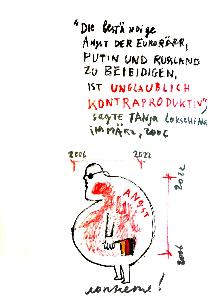 "DIE beständige
ANGST DER EUROPÄER,
PUTIN UND RUSLAND
ZU BELEIDIGEN,
IST UNGLAUBLICH
KONTRAPRODUKTIV",
SAGTE TANJA LOKSCHINA
IM MÄRZ, 2006
2006 2022
ANGST
2022
2006